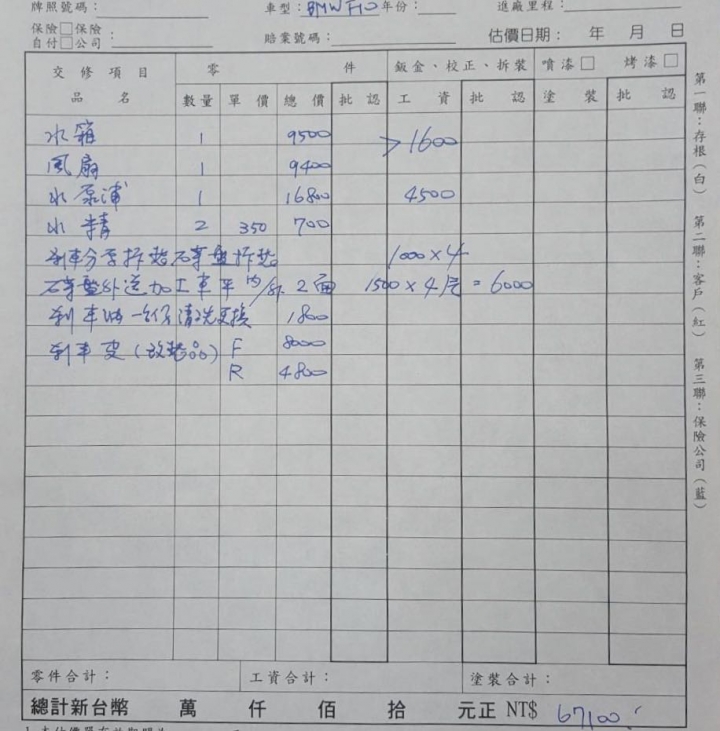 牌照號碼： 車型：BMW F10 年份： 進廠里程：
保險□保險
自付□公司： 賠業號碼： 估價日期： 年 月 日
交修項目 零件 鈑金、校正、拆裝 噴漆□ 烤漆□
品名 數量 單價 總價 批認 工資 批認 塗裝 批認
水箱 1 9500 > 1600
風扇 1 9400
水泵浦 1 16800 4500
水精 2 350 700
剎車分泵拆裝 碟盤拆裝 1000×4
碟盤外送加工車平 內/外 2面 1500×4片=6000
剎車油一仔清洗更換 1800
剎車皮(改裝品) F 8000
R 4800
零件合計： 工資合計： 塗裝合計：
總計新台幣 萬 仟 佰 拾 元正 NT$ 67100.
第一聯：存根（白） 第二聯：客戶（紅） 第三聯：保險公司（藍）